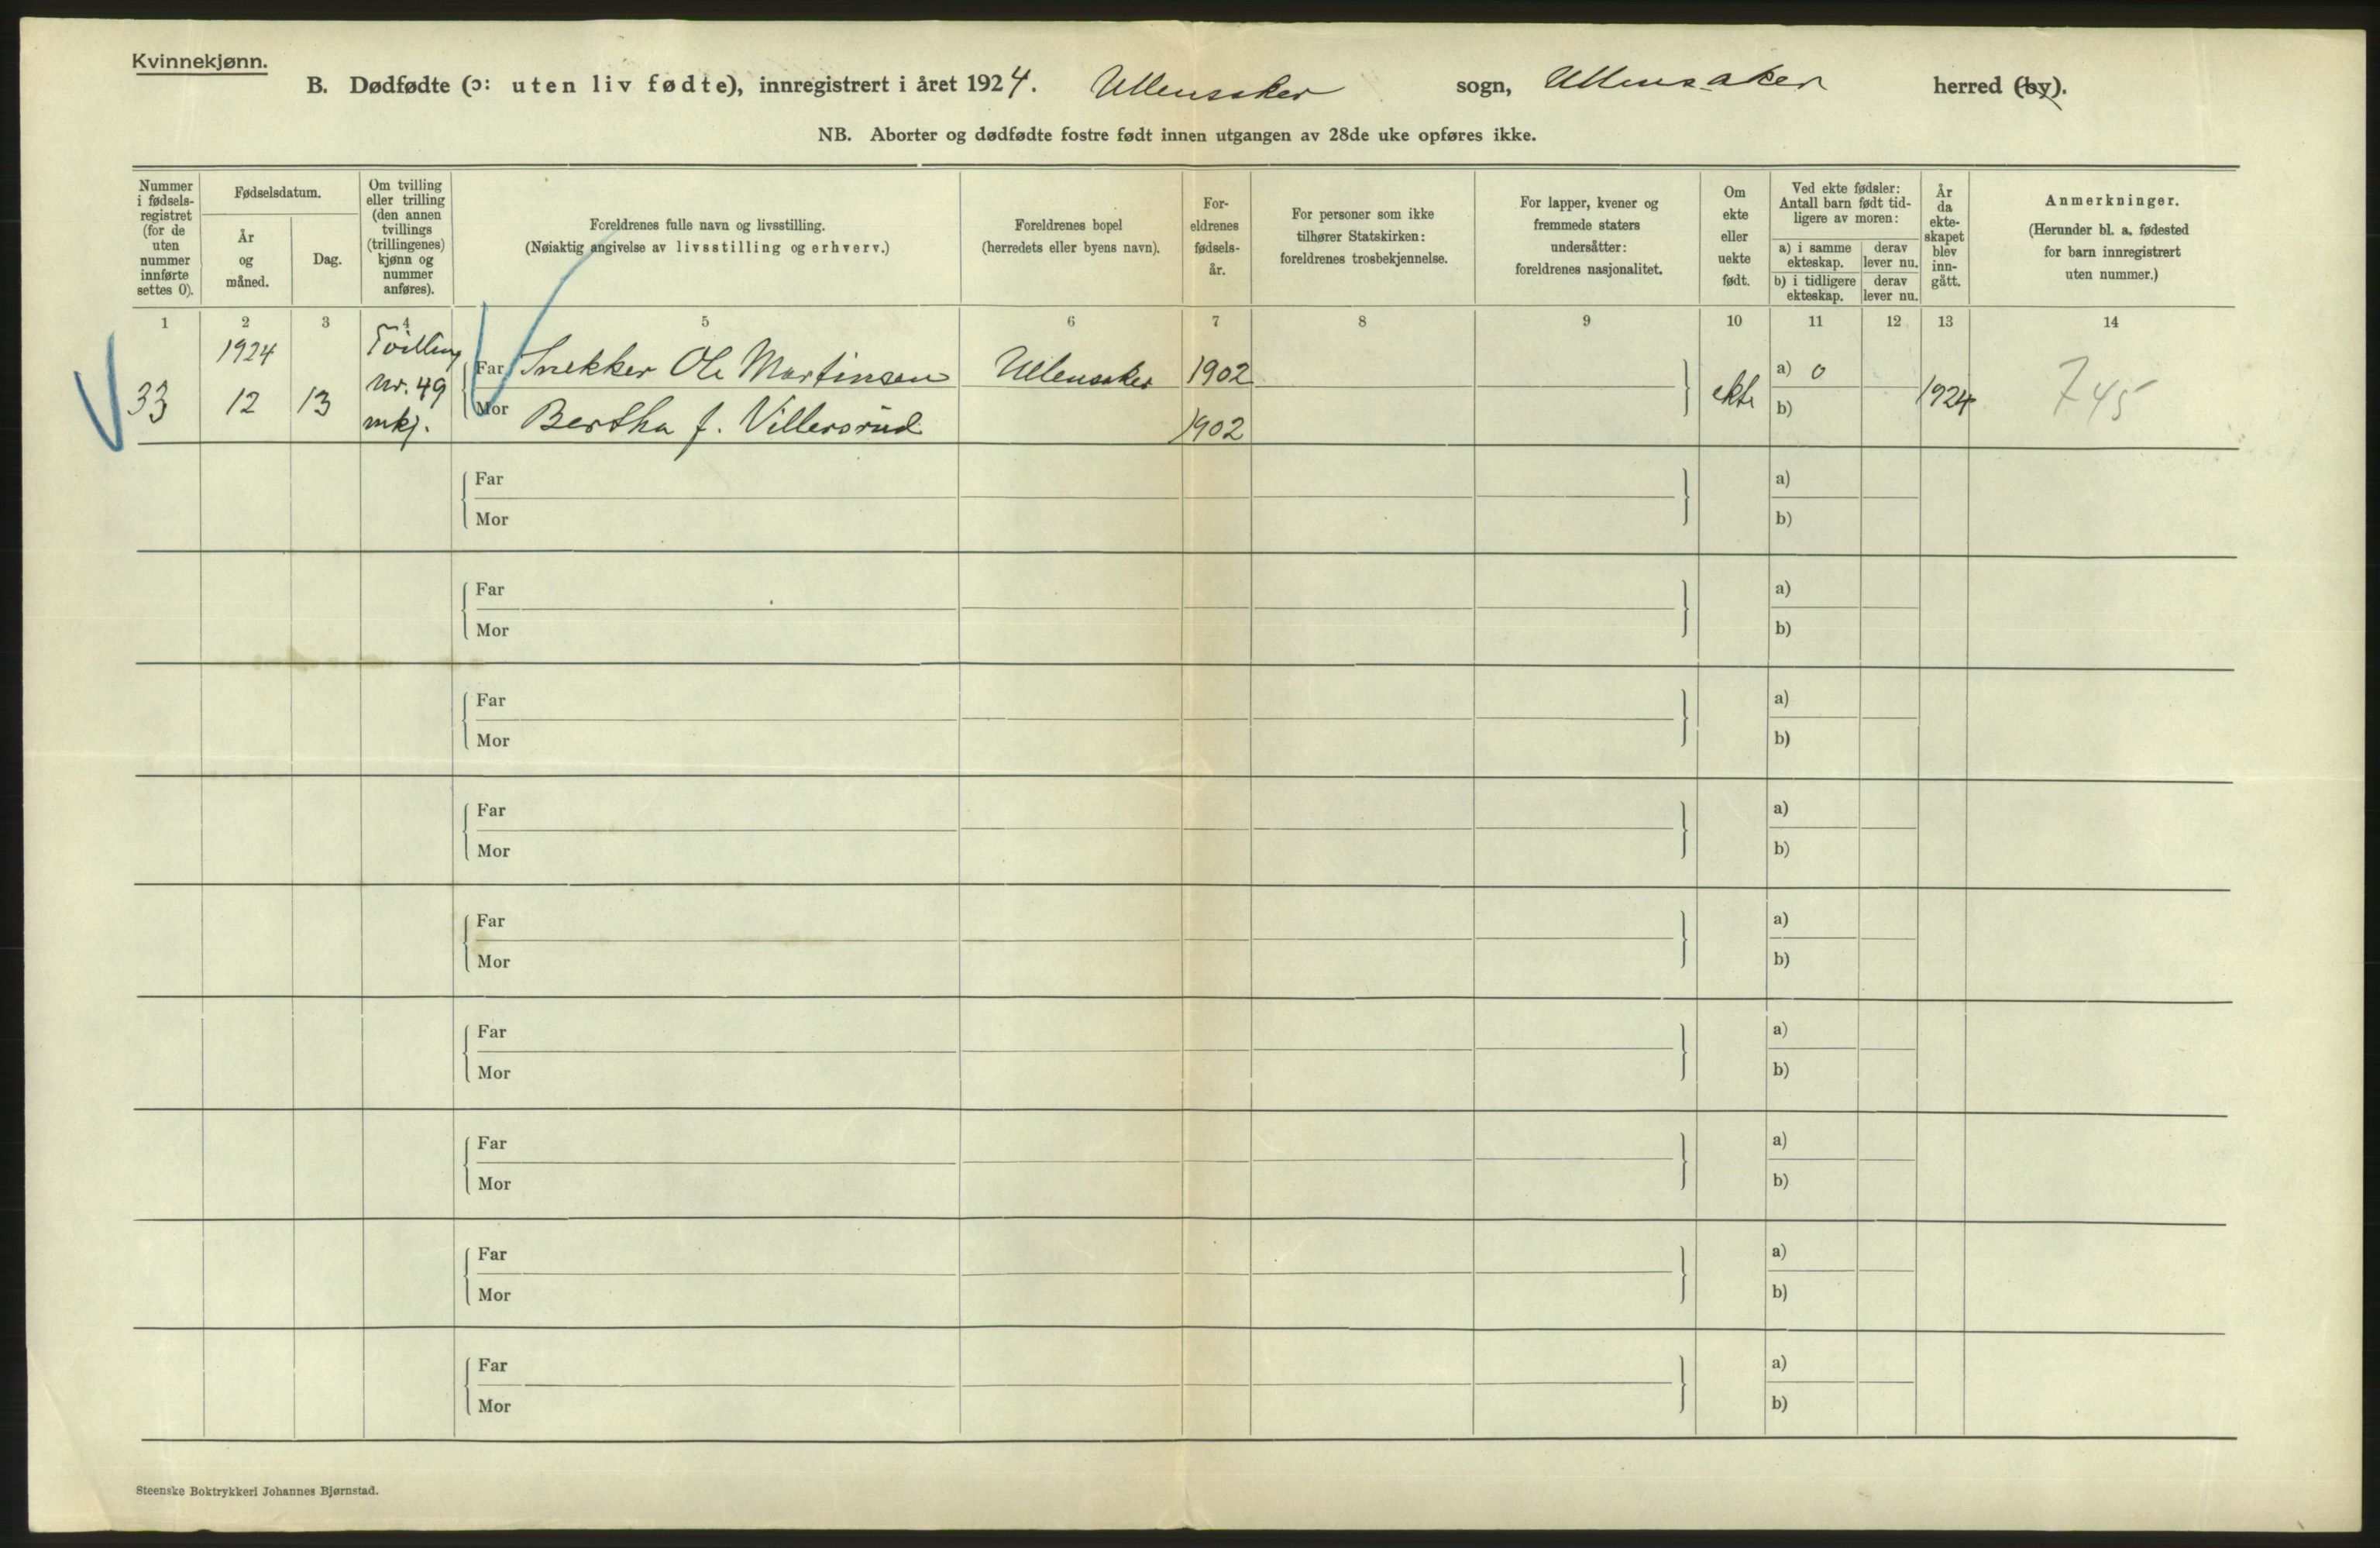 Kvinnekjønn.
B. Dødfødte (ɔ: uten liv fødte), innregistrert i året 1924. Ullensaker sogn, Ullensaker herred (by).
NB. Aborter og dødfødte fostre født innen utgangen av 28de uke opføres ikke.
Nummer i fødsels-registret (for de uten nummer innførte settes 0).
Fødselsdatum.
År og måned.
Dag.
Om tvilling eller trilling (den annen tvillings (trillingenes) kjønn og nummer anføres).
Foreldrenes fulle navn og livsstilling.
(Nøiaktig angivelse av livsstilling og erhverv.)
Foreldrenes bopel
(herredets eller byens navn).
For-eldrenes fødsels-år.
For personer som ikke tilhører Statskirken: foreldrenes trosbekjennelse.
For lapper, kvener og fremmede staters undersåtter: foreldrenes nasjonalitet.
Om ekte eller uekte født.
Ved ekte fødsler: Antall barn født tid-ligere av moren:
a) i samme ekteskap.
derav lever nu.
b) i tidligere ekteskap.
derav lever nu.
År da ekte-skapet blev inn-gått.
Anmerkninger.
(Herunder bl. a. fødested for barn innregistrert uten nummer.)
1 2 3 4 5 6 7 8 9 10 11 12 13 14
1924 Tvilling
33 12 13 nr. 49 mkj.
Far Snekker Ole Martinsen Ullensaker 1902
Mor Bertha f. Villersrud 1902
ekte a) 0
b)
1924 745
Far a)
Mor b)
Far a)
Mor b)
Far a)
Mor b)
Far a)
Mor b)
Far a)
Mor b)
Far a)
Mor b)
Far a)
Mor b)
Far a)
Mor b)
Far a)
Mor b)
Steenske Boktrykkeri Johannes Bjørnstad.